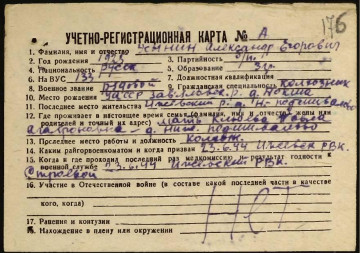 176
УЧЕТНО-РЕГИСТРАЦИОННАЯ КАРТА № А
1. Фамилия, имя и отчество Александр Егорович
2. Год рождения 1925 3. Партийность б/п
4. Национальность русск 5. Образование 3 кл.
6. На ВУС 133 7. Должностная квалификация
8. Военное звание рядовой 9. Гражданская специальность колхозник
10. Место рождения УАССР Завьяловс. р. д.
11. Последнее местительства Ижевский р. д. Н-
12. Где проживает в настоящее время семья (фамилия, имя и отчество жены или
родителей и точный их адрес) мать
д. Ниж.
13. Последнее место работы и должность колхоз
14. Каким райгорвоенкоматом и когда призван 23.6.44 Ижевск РВК.
15. Когда и где проходил последний раз медкомиссию и результат годности к
военной службе 23.6.44 Ижевский РВК.
Строевой
16. Участие в Отечественной войне (в составе какой последней части в качестве
кого, когда) Нет
17. Ранения и контузии
18. Нахождение в плену или окружении